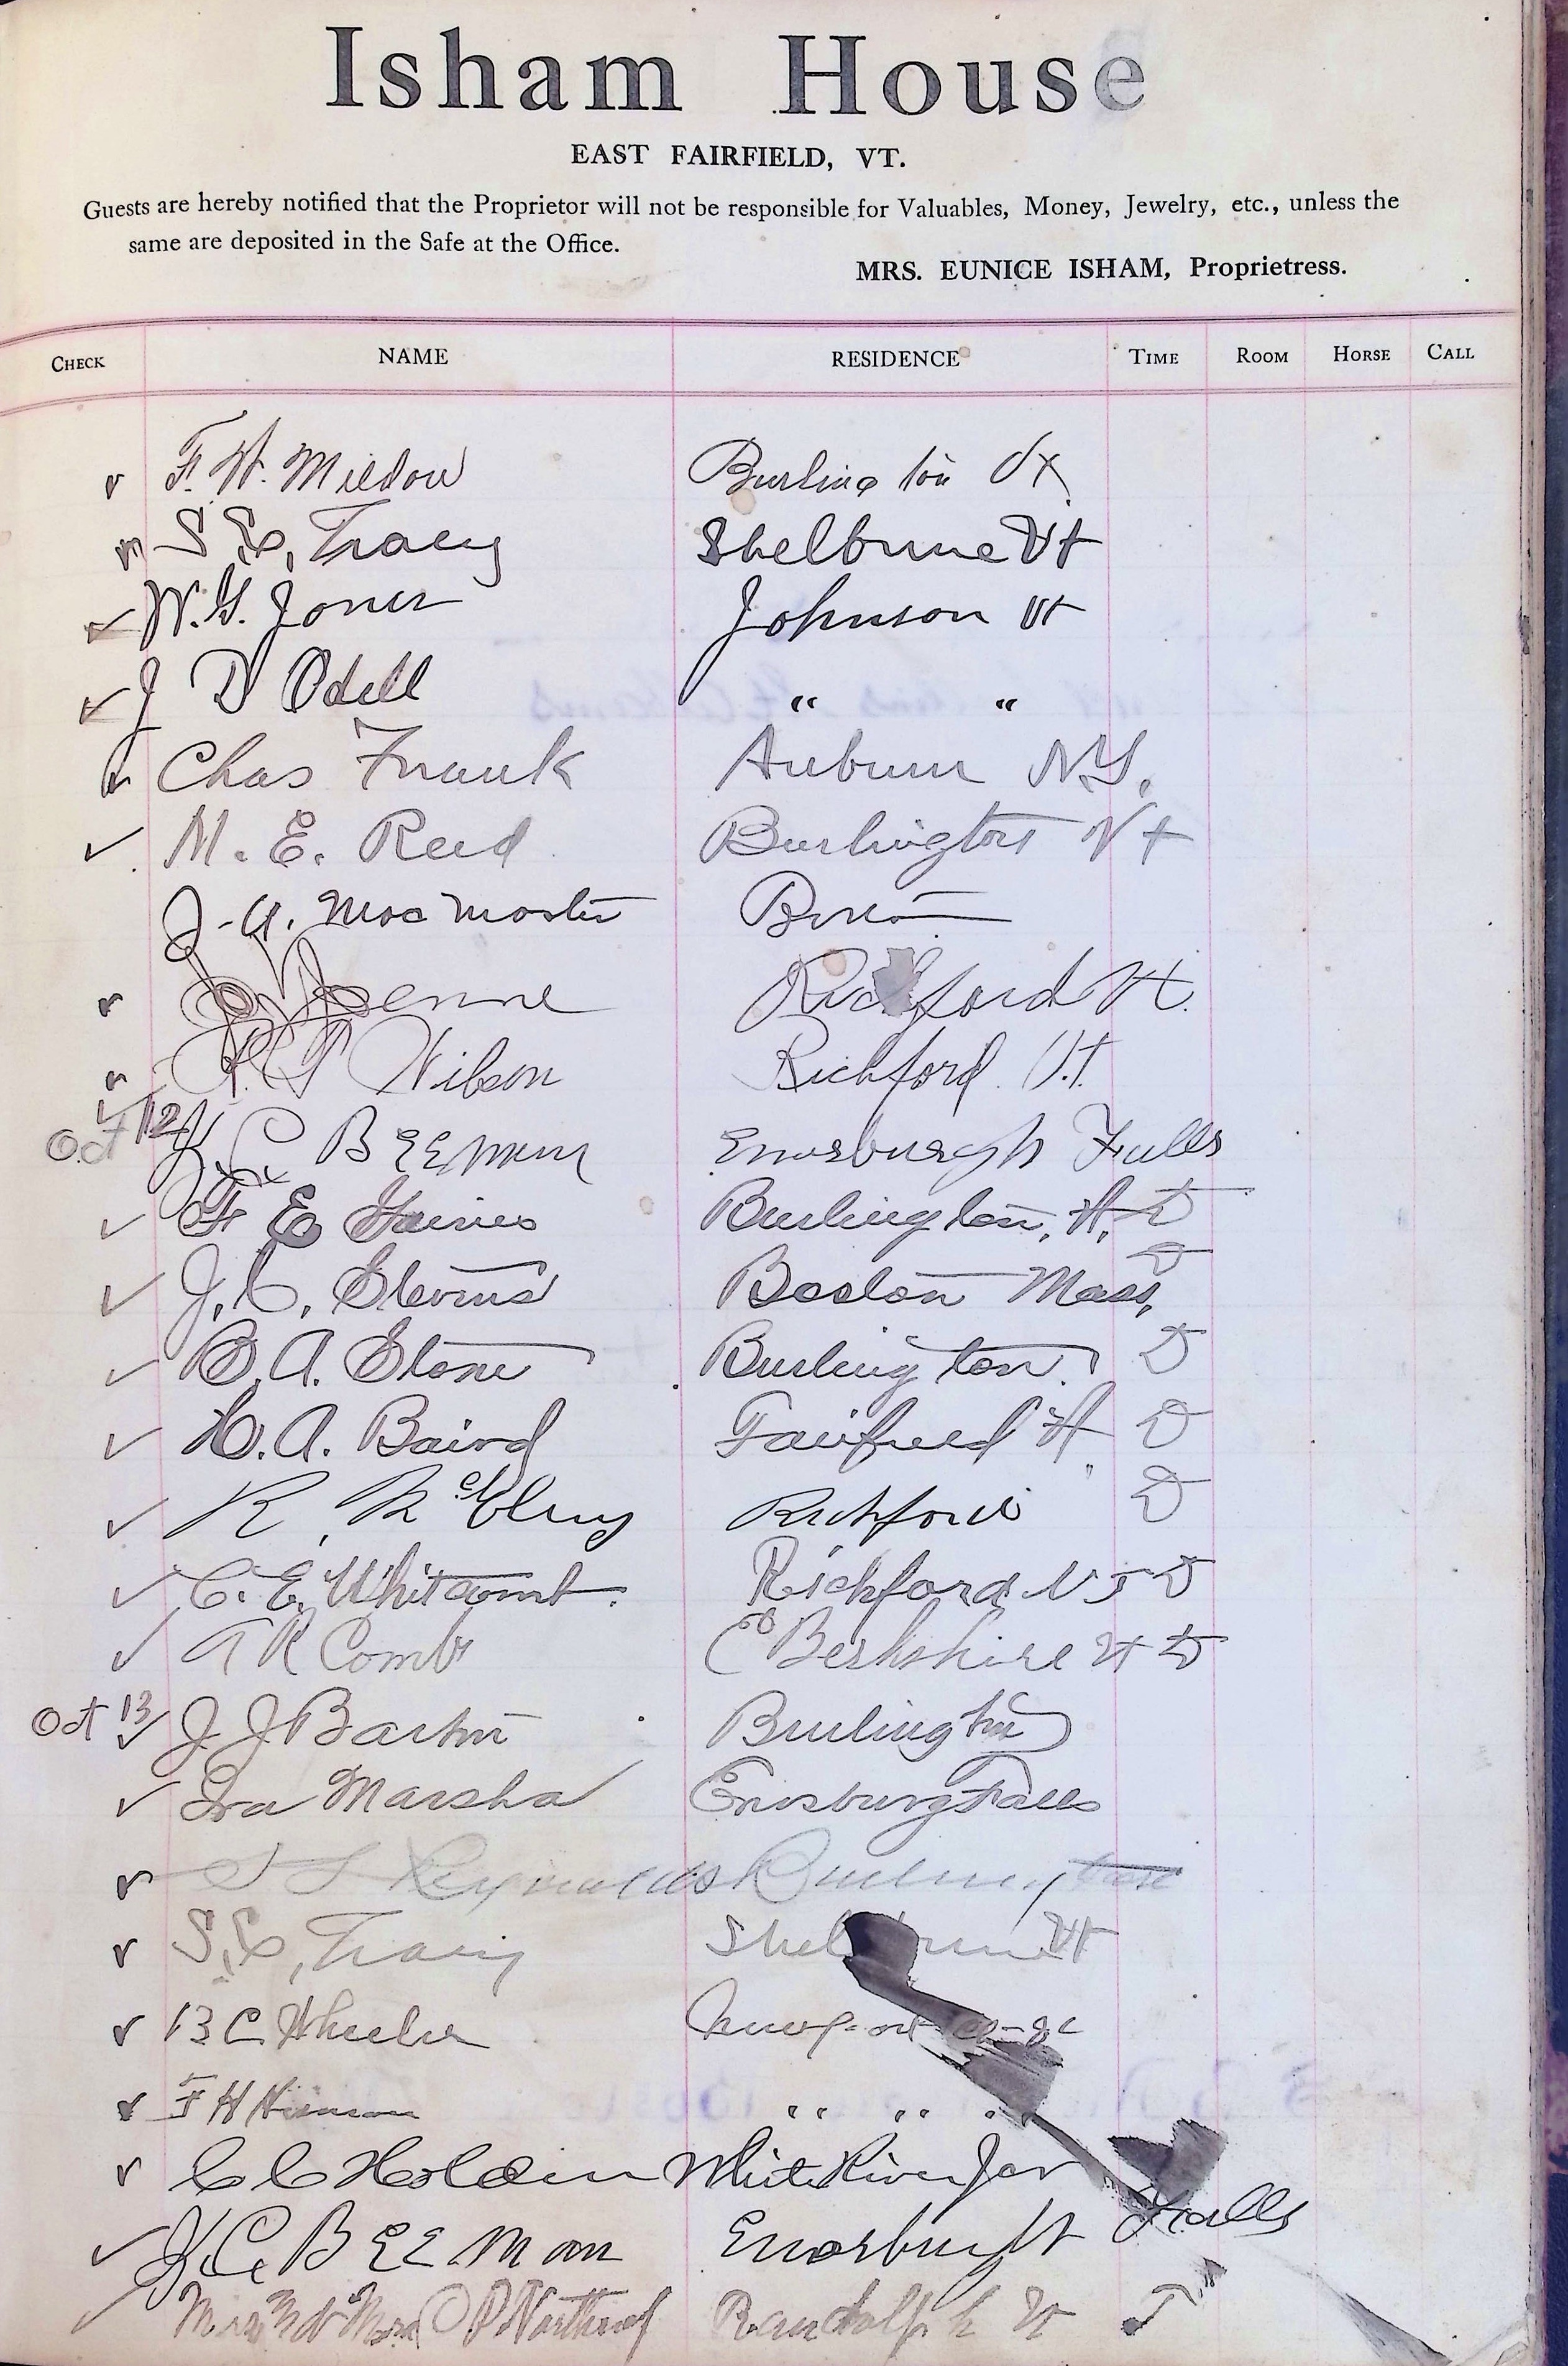 Isham House
EAST FAIRFIELD, VT.
Guests are hereby notified that the Proprietor will not be responsible for Valuables, Money, Jewelry, etc., unless the
same are deposited in the Safe at the Office.
MRS. EUNICE ISHAM, Proprietress.
CHECK NAME RESIDENCE TIME ROOM HORSE CALL
F. W. Burlington Vt
S. E. Tracy Shelburne Vt
W. G. Jones Johnson Vt
J D Odell " "
Chas Frank Auburn N.Y.
M. E. Reed Burlington Vt
J. A. MacMaster Boston
Jenne Richford Vt.
Wilson Richford Vt.
Oct 12 K C BEEMAN Enosburgh Falls
F E Burlington, Vt. D
J. C. Stevens Boston Mass, D
B. A. Stone Burlington. D
H. A. Baird Fairfield Vt D
R. McElroy Richford D
C. E. Whitcomb. Richford V T D
R Comb E Berkshire Vt D
Oct 13 J J Barton Burlington
Ira Marsha Enosburg Falls
Reynolds Burlington
S. E. Tracy Shelburne Vt
B C Wheeler Newport
F H " "
C C Holden White River Jct
K. C. BEEMAN Enosburg Vt Falls
Mr & Mrs Northrop Randolph Vt